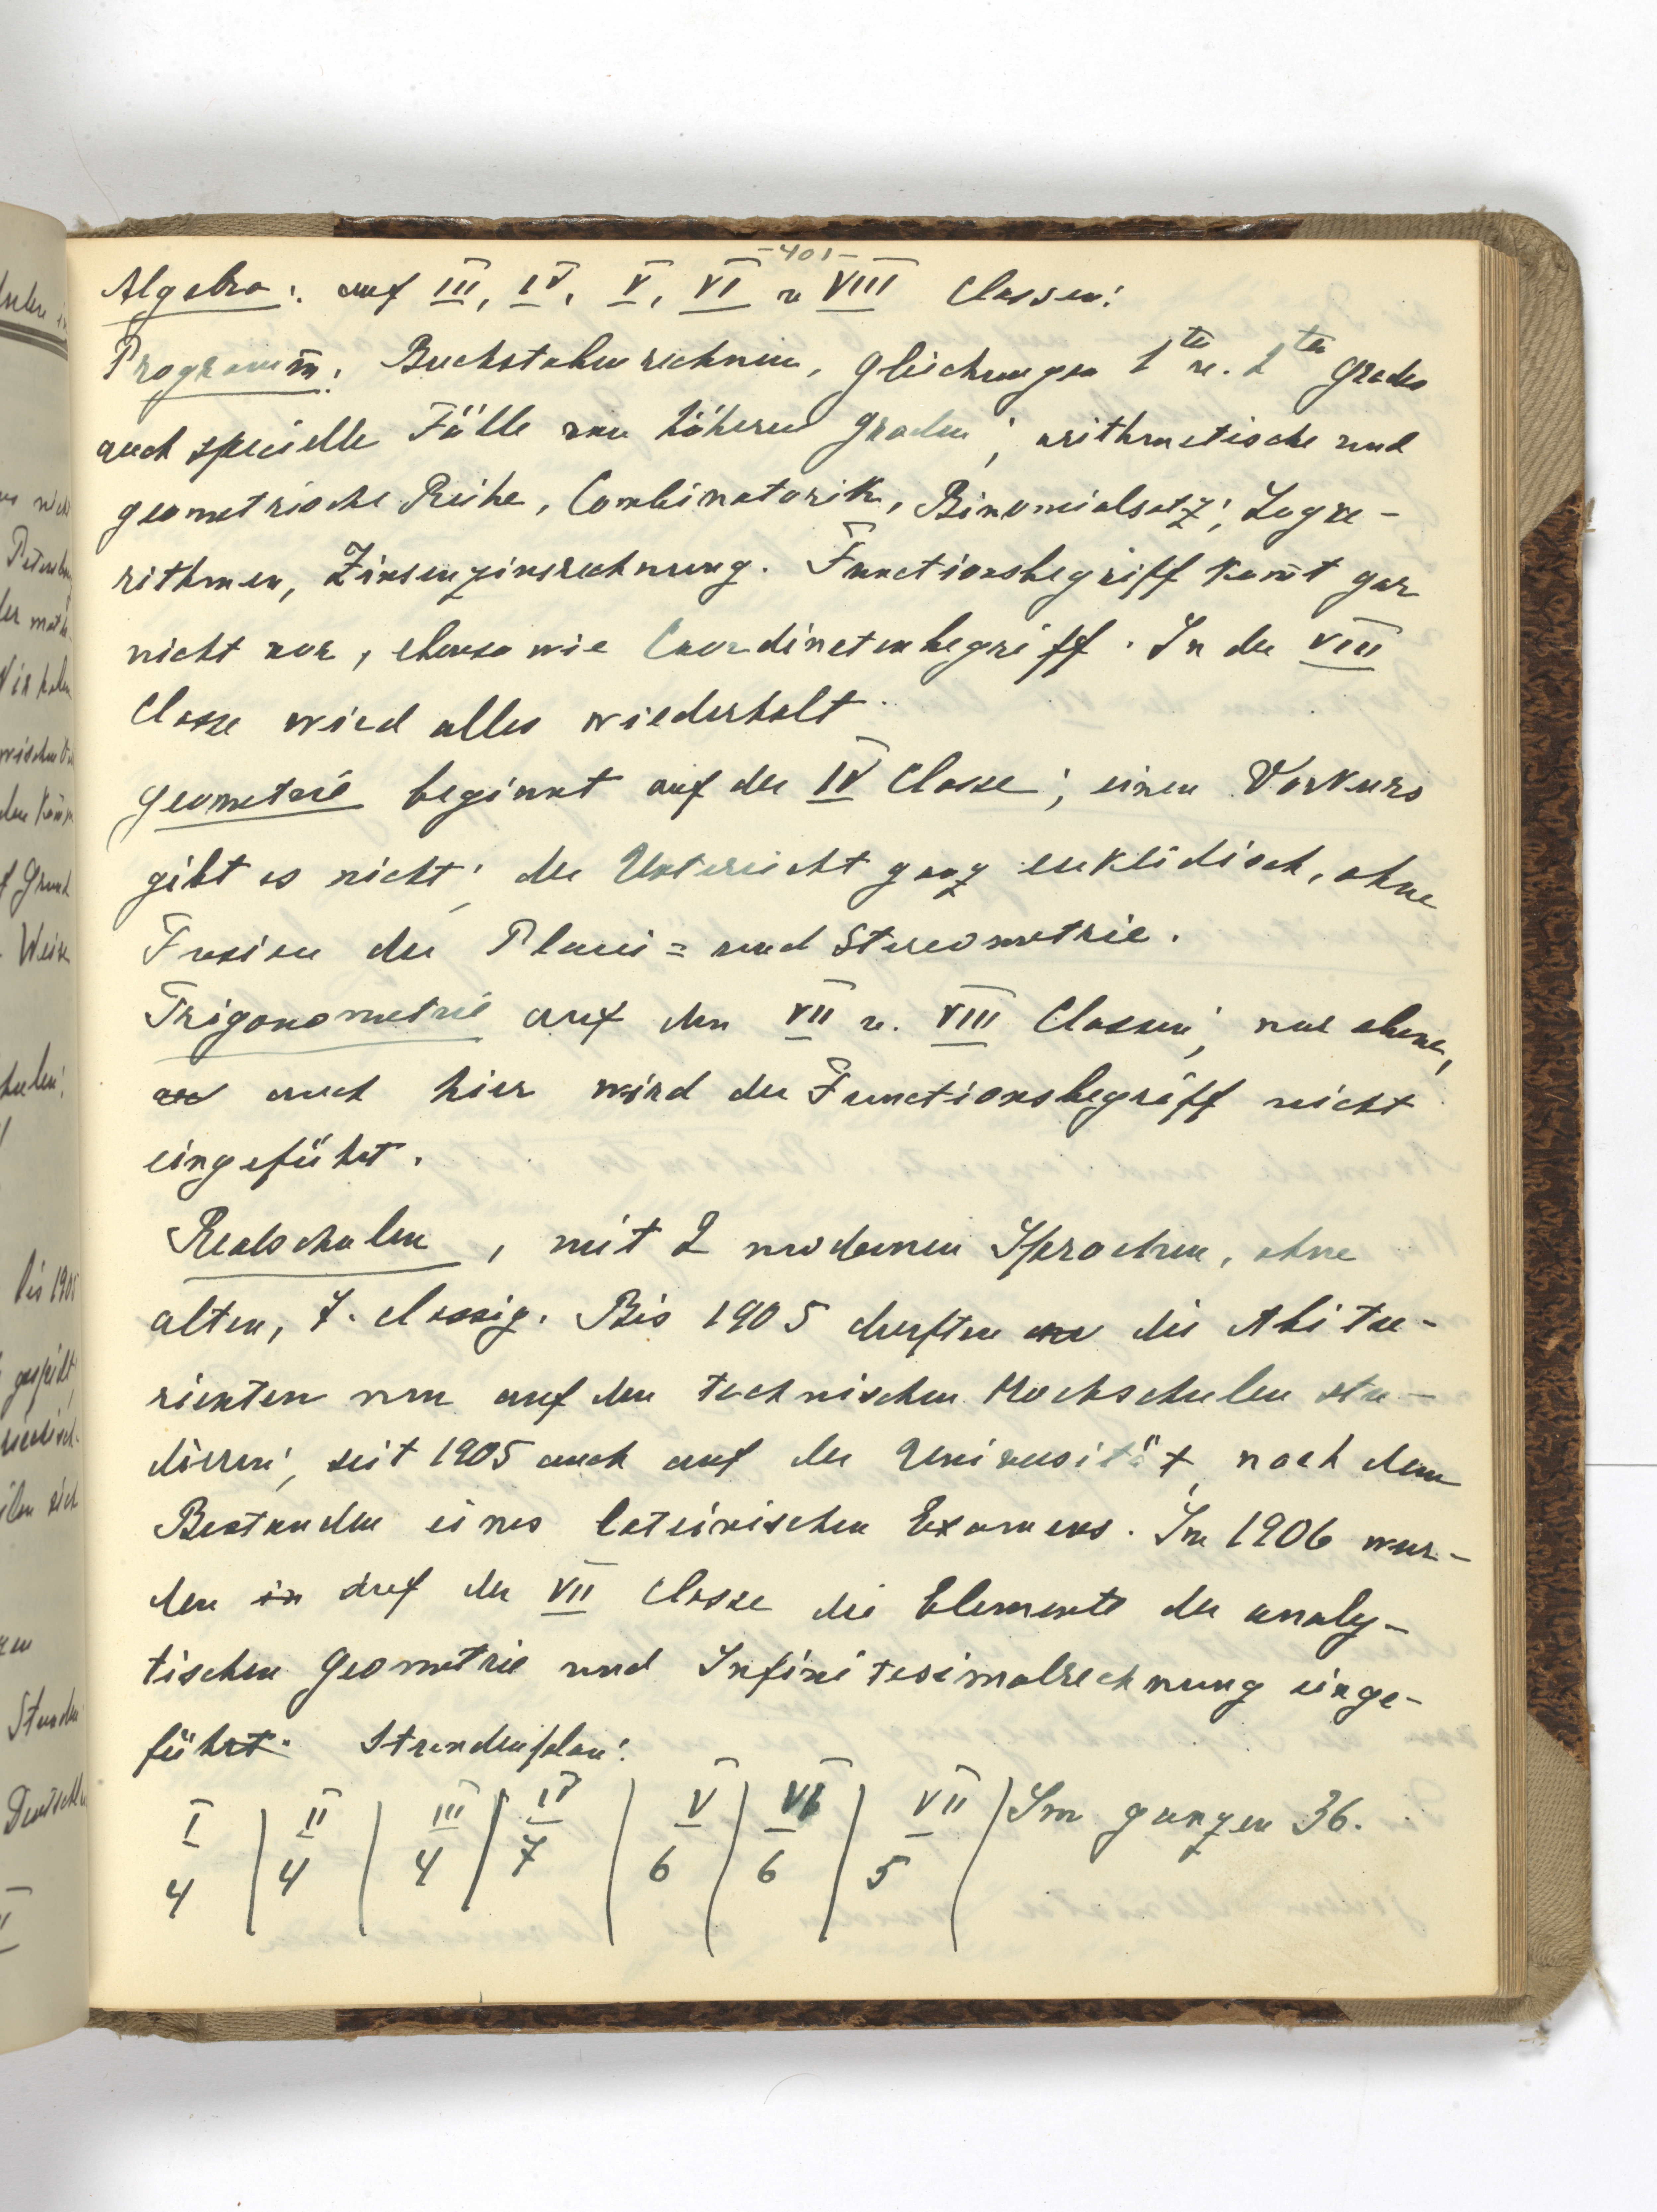 -401-
Algebra: auf III, IV, V, VI u VIII Classen:
Program̅m: Buchstabenrechnen, Gleichungen 1ten u. 2ten Grades
auch specielle Fälle von höheren Graden; arithmetische und
geometrische Reihe, Combinatorik, Binomialsatz; Loga-
rithmen, Zinsenzinsrechnung. Functionsbegriff kom̅t gar
nicht vor, ebenso wie Coordinatenbegriff. In der VIII
Classe wird alles wiederholt.
Geometrie beginnt auf der IV Classe; einen Vorkurs
gibt es nicht; der Unterricht ganz euklidisch, ohne
Fusion der Plani= und Stereometrie.
Trigonometrie auf den VII u. VIII Classen; nur ebene,
auch hier wird der Functionsbegriff nicht
eingeführt.
Realschulen, mit 2 modernen Sprachen, ohne
alten, 7-classig. Bis 1905 durften die Abitu-
rienten nur auf den technischen Hochschulen stu-
diren; seit 1905 auch auf der Universität, nach dem
Bestanden eines lateinischen Examens. Im 1906 wur-
den in auf der VII Classe die Elemente der analy-
tischen Geometrie und Infinitesimalrechnung einge-
führt. Stundenplan:
I | II | III | IV | V | VI | VII | Im ganzen 36.
4 | 4 | 4 | 7 | 6 | 6 | 5